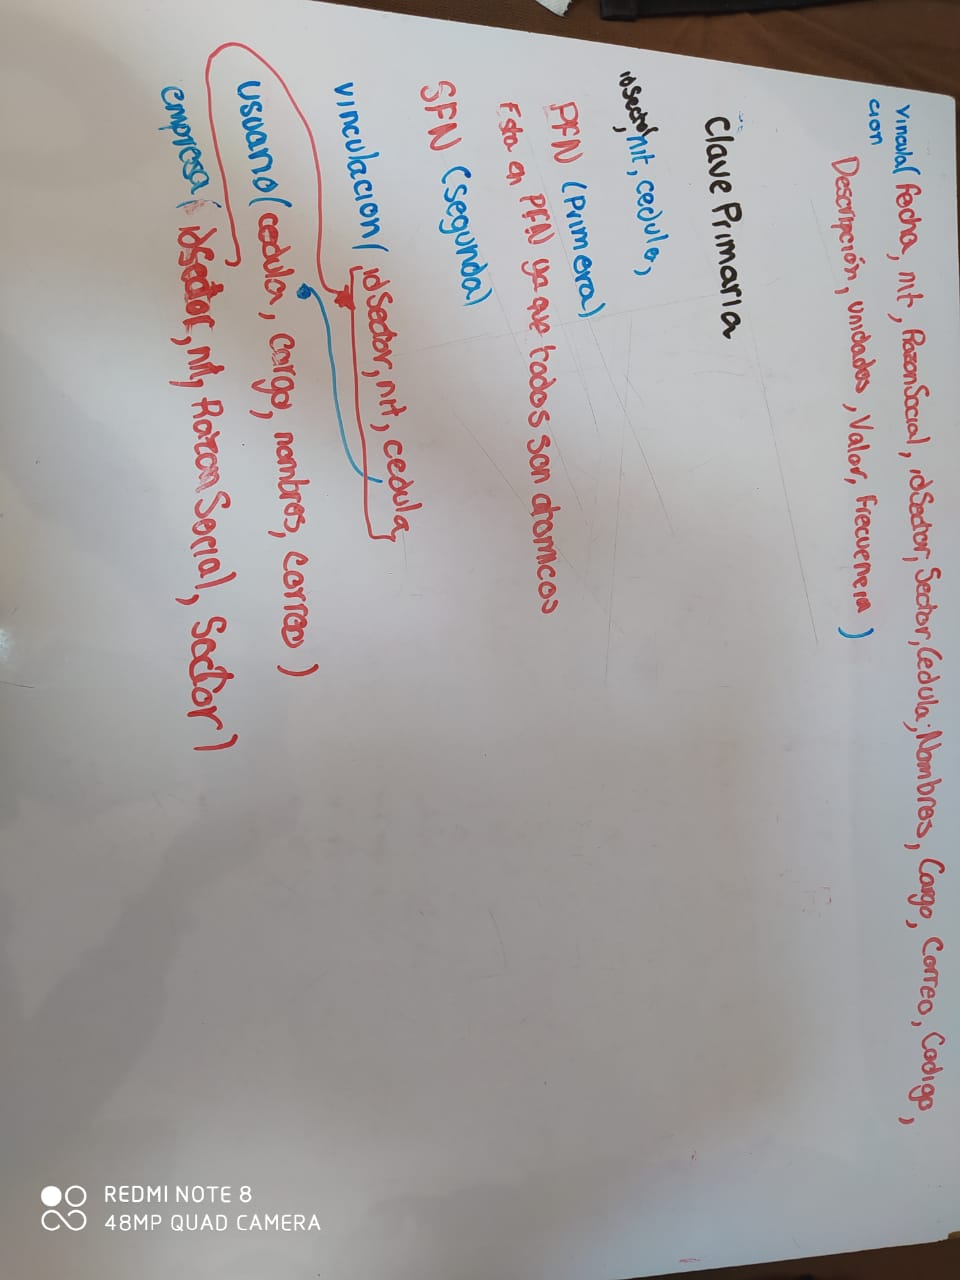 vincula( fecha, nit, RazonSocial, idSector, Sector, Cedula, Nombres, Cargo, Correo, Codigo,
cion
Descripción, unidades, Valor, frecuencia)
Clave Primaria
idSector, nit, cedula,
PFN (Primera)
Esta en PFN ya que todos son atomicos
SFN (segunda)
vinculacion( idSector, nit, cedula,
usuario( cedula, cargo, nombres, correo)
empresa( idSector, nit, RazonSocial, Sector)
REDMI NOTE 8
48MP QUAD CAMERA